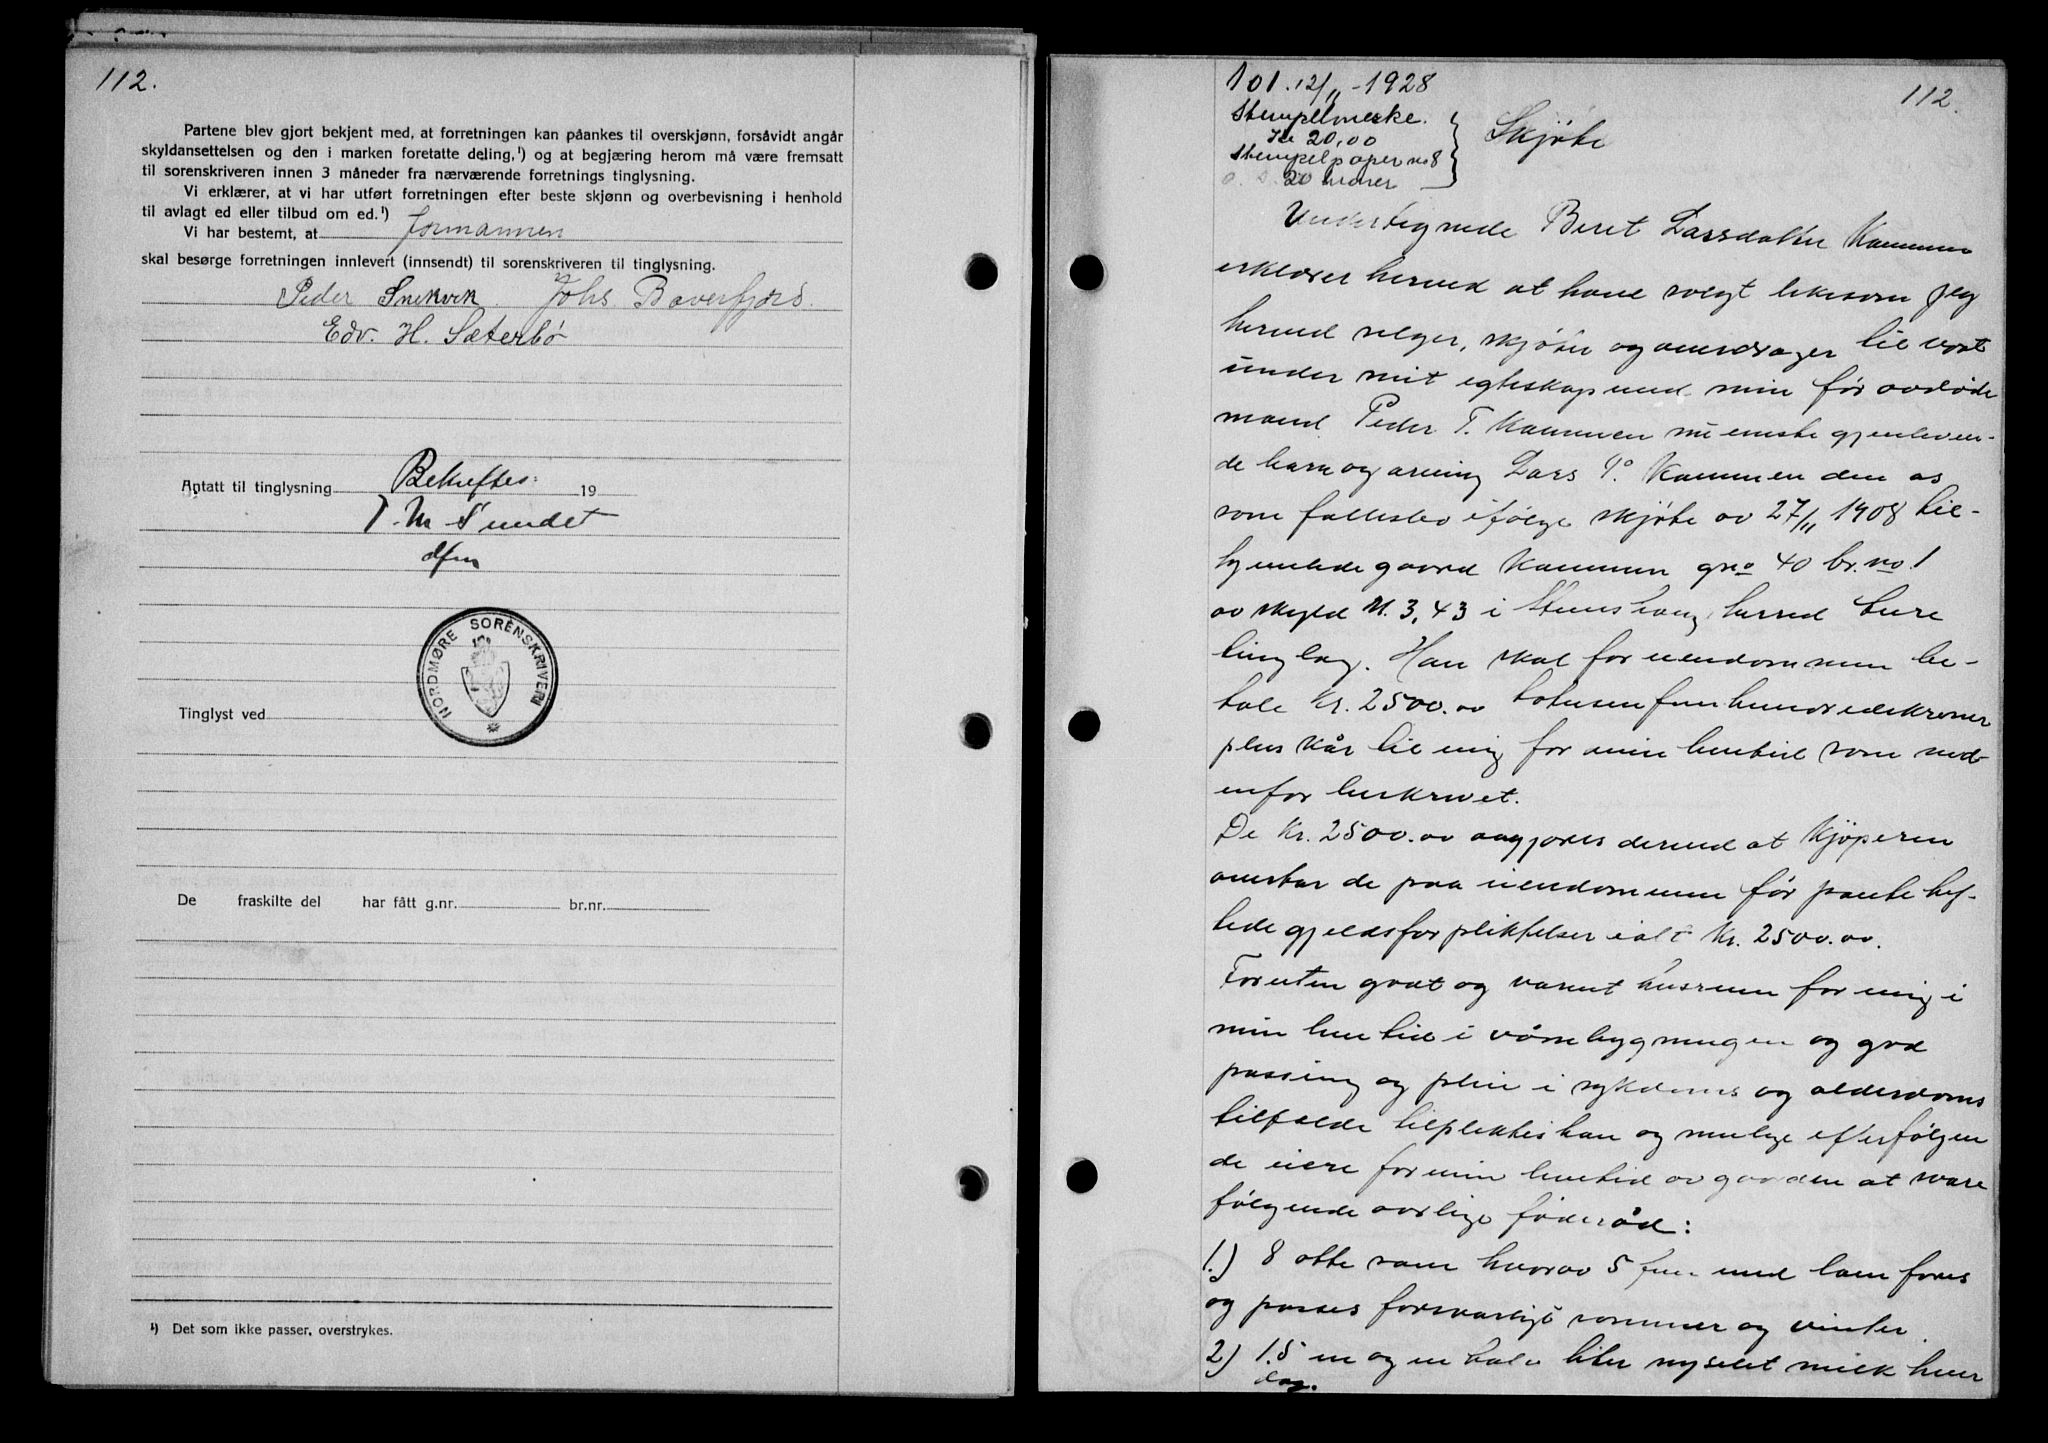 112.
Partene blev gjort bekjent med, at forretningen kan påankes til overskjønn, forsåvidt angår
skyldansettelsen og den i marken foretatte deling,¹) og at begjæring herom må være fremsatt
til sorenskriveren innen 3 måneder fra nærværende forretnings tinglysning.
Vi erklærer, at vi har utført forretningen efter beste skjønn og overbevisning i henhold
til avlagt ed eller tilbud om ed.¹)
Vi har bestemt, at formannen
skal besørge forretningen innlevert (innsendt) til sorenskriveren til tinglysning.
Peder Snekvik Johs Bæverfjord.
Edv. H. Sæterbö
Antatt til tinglysning Bekreftes: 19
T. M. Sundet
dfm
NORDMØRE SORENSKRIVERI
Tinglyst ved
De fraskilte del har fått g.nr. br.nr.
¹) Det som ikke passer, overstrykes.
101. 12/11-1928
112.
Stempelmerke.
Kr 20,00
Stempelpapir no 8
20 kroner
Skjøte
Undertegnede Beret Larsdatter Kammen
erklærer herved at have solgt likesom jeg
herved selger, skjøter og overdrager til vort
under mit egteskap med min før avdøde
mand Peder T. Kammen nu eneste gjenleven-
de barn og arving Lars P. Kammen den os
som fælleseie ifølge skjøte av 27/11 1908 til-
hørende gaard Kammen gno 40 br.no 1
av skyld M. 3,43 i Stemshaug herred Aure
tinglag. Han skal for eiendommen be-
tale Kr. 2500.00 totusenfemhundredekroner
plus kår til mig for min levetid som ned-
enfor beskrevet.
De Kr. 2500.00 opgjøres derved at kjøperen
overtar de paa eiendommen før pantehef-
tede gjeldsforpliktelser ialt Kr. 2500.00.
Foruten godt og varmt husrum for mig i
min levetid i våningsbygningen og god
passing og pleie i sykdoms og alderdoms
tilfælde tilpliktes han og mulige efterfølgen
de eiere for min levetid av gaarden at svare
følgende aarlige føderåd:
1.) 8 otte sauer hvorav 5 fem med lam fores
og passes forsvarligt sommer og vinter.
2) 1.5 en og en halv liter nysilet melk hver
dag.